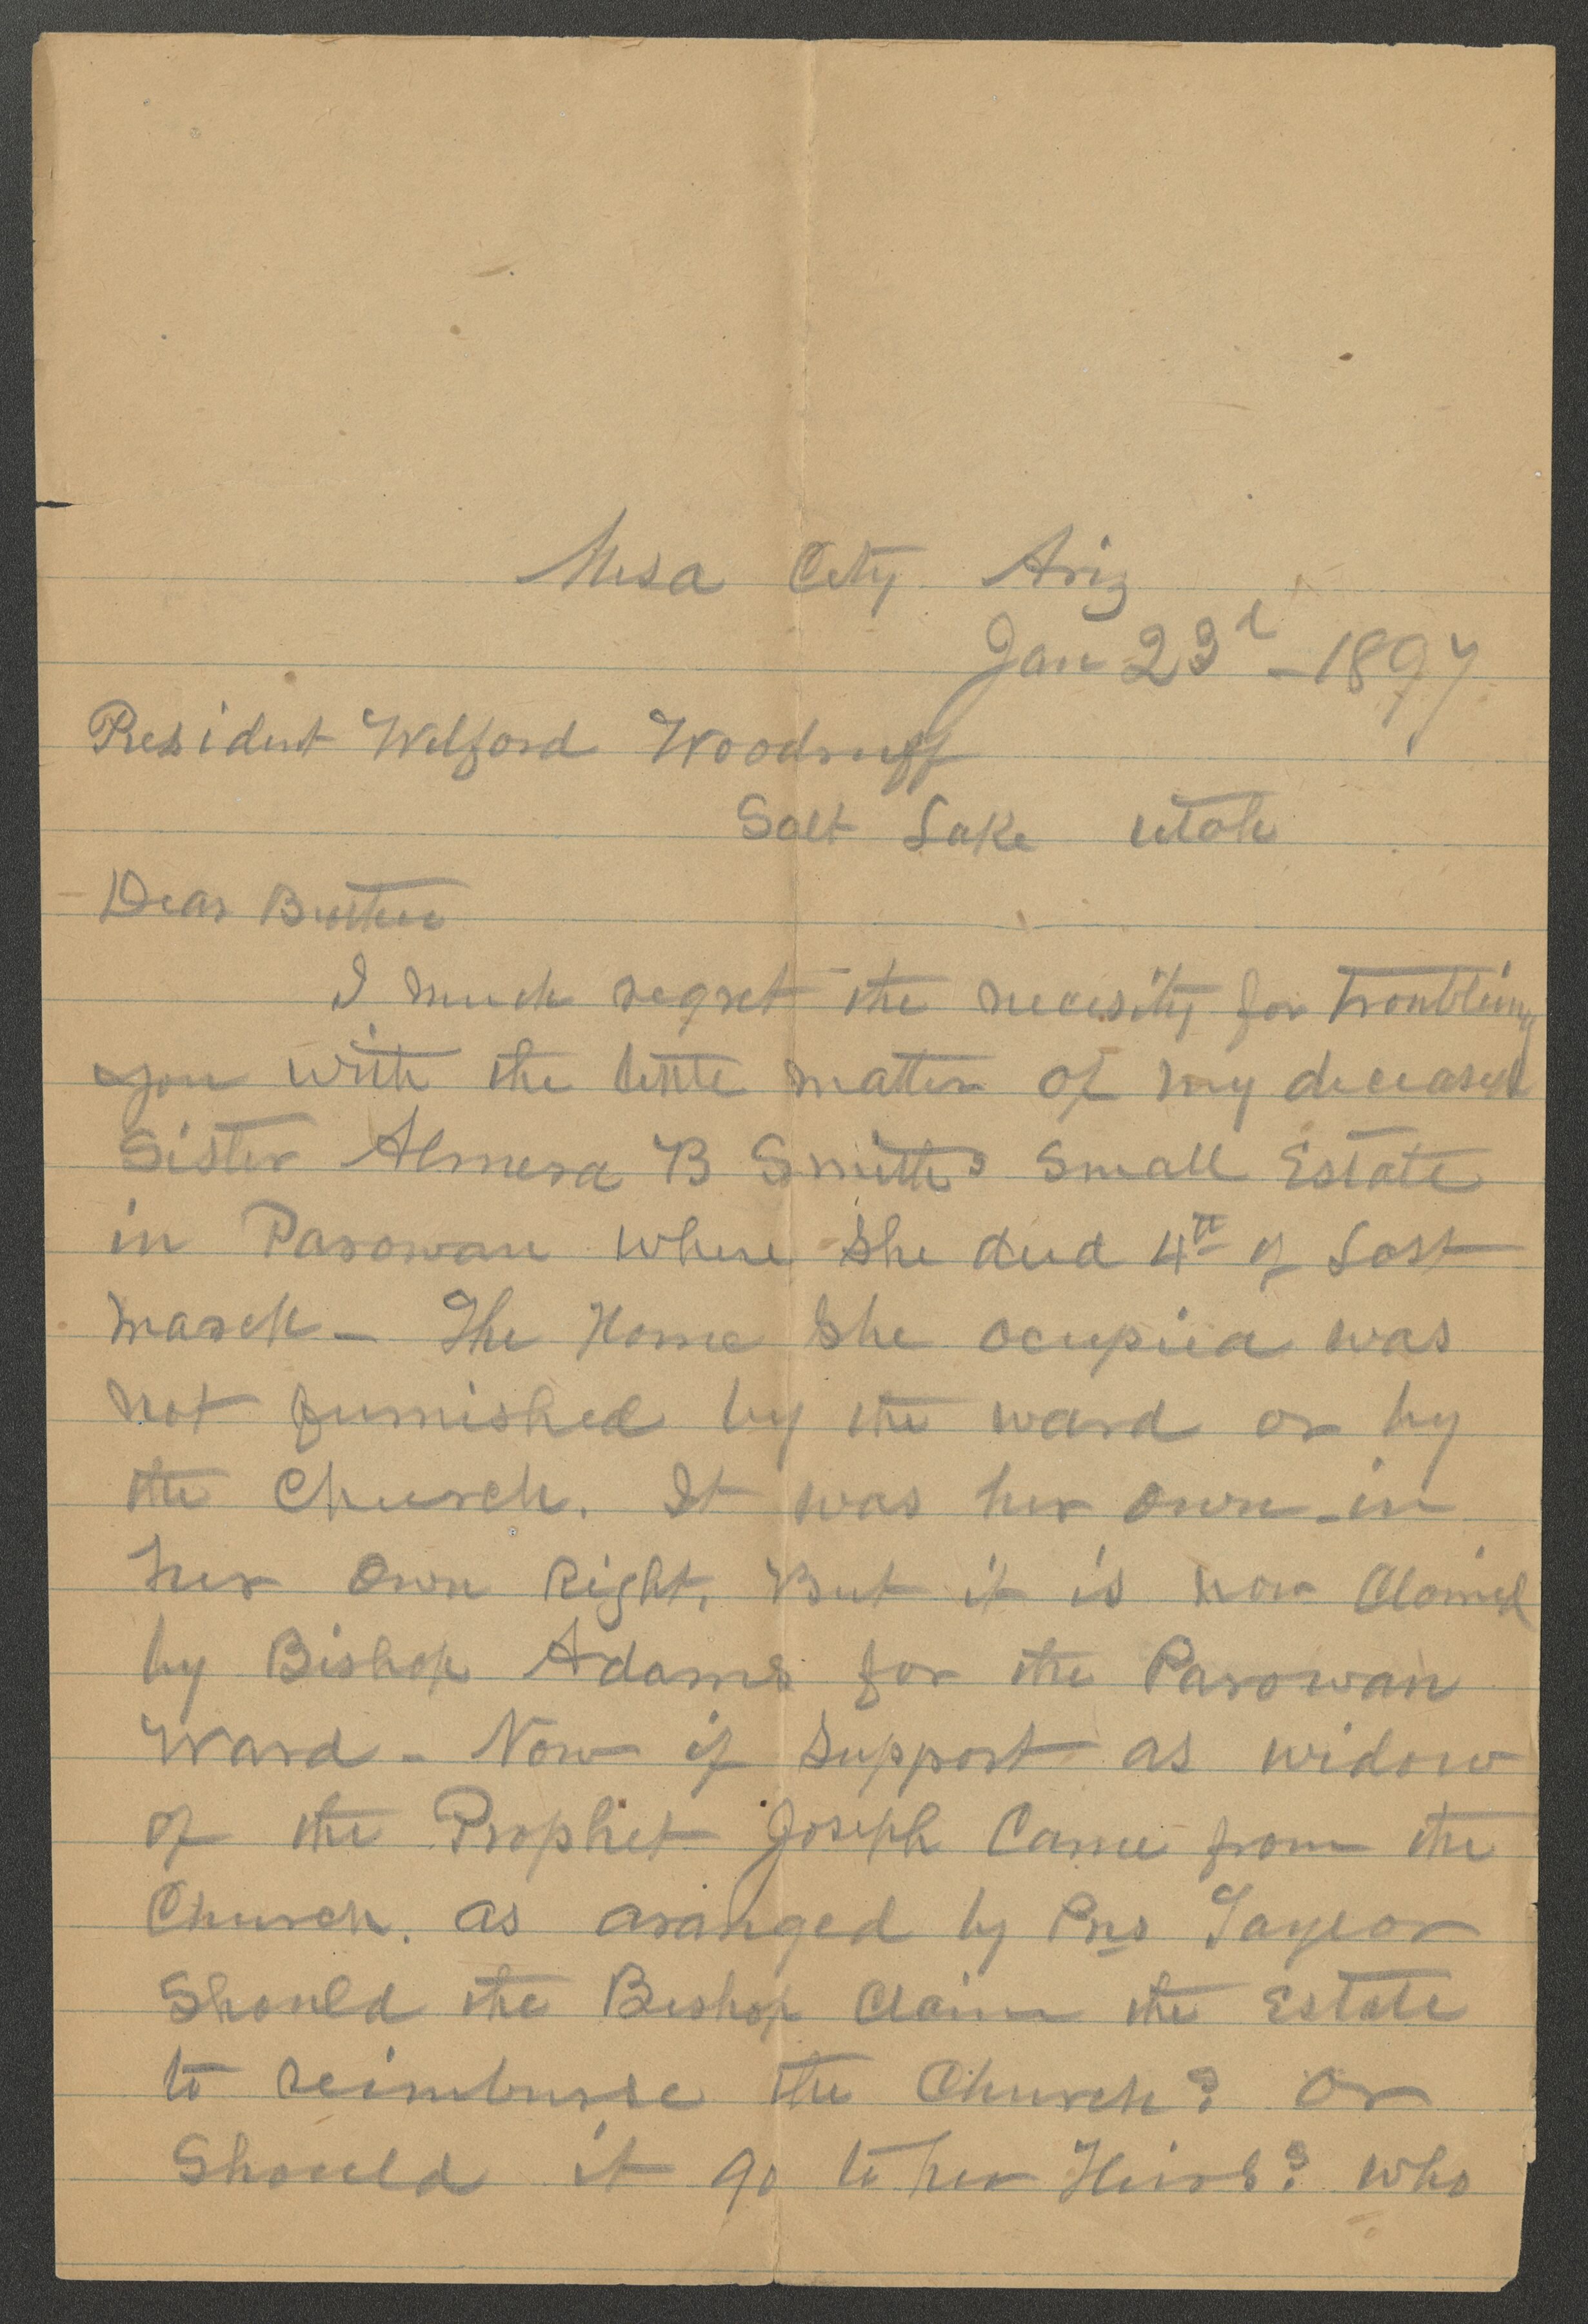 Mesa City Ariz
Jan 23d – 1897
President Wilford Woodruff
Salt Lake Utah
Dear Brother
I much regret the necesity for troubling
you with the little matter of my deceased
Sister Almera B Smiths Small Estate
in Parowan where she died 4th of Last
March – The Home she ocupied was
not furnished by the ward or by
the Church. It was her own – in
her own Right. But it is now Claimed
by Bishop Adams for the Parowan
Ward – Now if support as widow
of the Prophet Joseph Came from the
Church. as aranged by Prs Taylor
Should the Bishop Claim the Estate
to reimburse the Church? or
Should it go to her Heirs? who